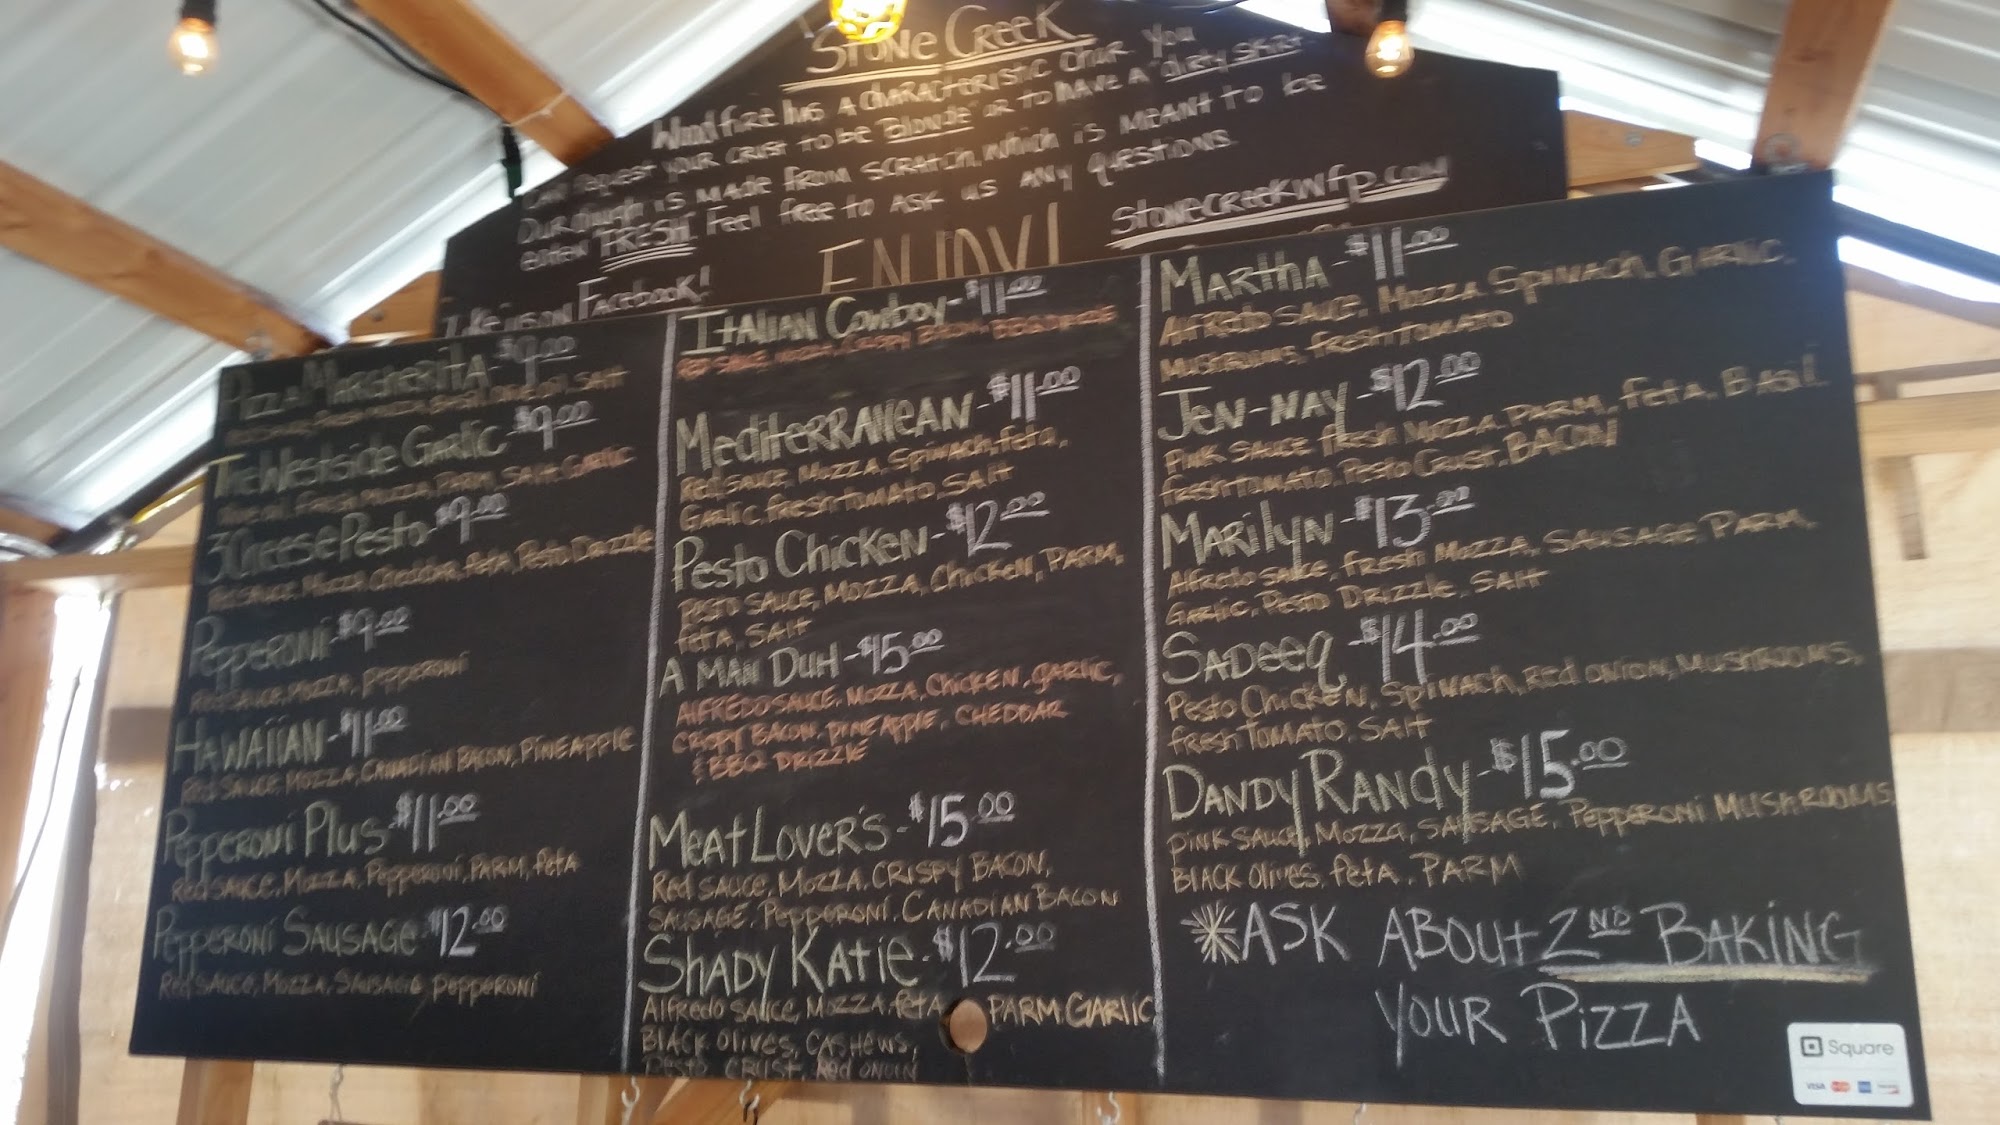 Stone Creek
Wood fire has a characteristic char. You
can request your crust to be "Blonde" or to have a "dirty skirt"
Our dough is made from scratch, which is meant to be
eaten FRESH. Feel free to ask us any questions.
ENJOY!
stonecreekwfp.com
Like us on Facebook!
Pizza Margherita - $9.00
Basil, Olive oil, Salt
The Westside Garlic - $9.00
Olive oil, Fresh Mozza, Parm, Salt, Garlic
3 Cheese Pesto - $9.00
Red sauce, Mozza, Cheddar, feta, Pesto Drizzle
Pepperoni - $9.00
Red sauce, Mozza, Pepperoni
Hawaiian - $11.00
Red Sauce, Mozza, Canadian Bacon, Pineapple
Pepperoni Plus - $11.00
Red Sauce, Mozza, Pepperoni, Parm, feta
Pepperoni Sausage - $12.00
Red Sauce, Mozza, Sausage, Pepperoni
Italian Cowboy - $11.00
Red Sauce, Mozza, Crispy Bacon,
Mediterranean - $11.00
Red Sauce, Mozza, Spinach, feta,
Garlic, fresh tomato, Salt
Pesto Chicken - $12.00
Pesto Sauce, Mozza, Chicken, Parm,
feta, Salt
A Man Duh - $15.00
Alfredo Sauce, Mozza, Chicken, Garlic,
Crispy Bacon, Pineapple, Cheddar
& BBQ Drizzle
Meat Lover's - $15.00
Red Sauce, Mozza, Crispy Bacon,
Sausage, Pepperoni, Canadian Bacon
Shady Katie - $12.00
Alfredo Sauce, Mozza, feta, Parm, Garlic
Black Olives, Cashews,
Pesto Crust, Red onion
Martha - $11.00
Alfredo Sauce, Mozza, Spinach, Garlic,
Mushrooms, fresh tomato
Jen-Nay - $12.00
Pink Sauce, fresh Mozza, Parm, feta, Basil,
fresh tomato, Pesto Crust, Bacon
Marilyn - $13.00
Alfredo Sauce, fresh Mozza, Sausage, Parm,
Garlic, Pesto Drizzle, Salt
Sadeeq - $14.00
Pesto Chicken, Spinach, Red onion, Mushrooms,
fresh Tomato, Salt
Dandy Randy - $15.00
Pink Sauce, Mozza, Sausage, Pepperoni Mushrooms,
Black Olives, feta, Parm
*Ask About 2nd Baking
Your Pizza
Square
VISA